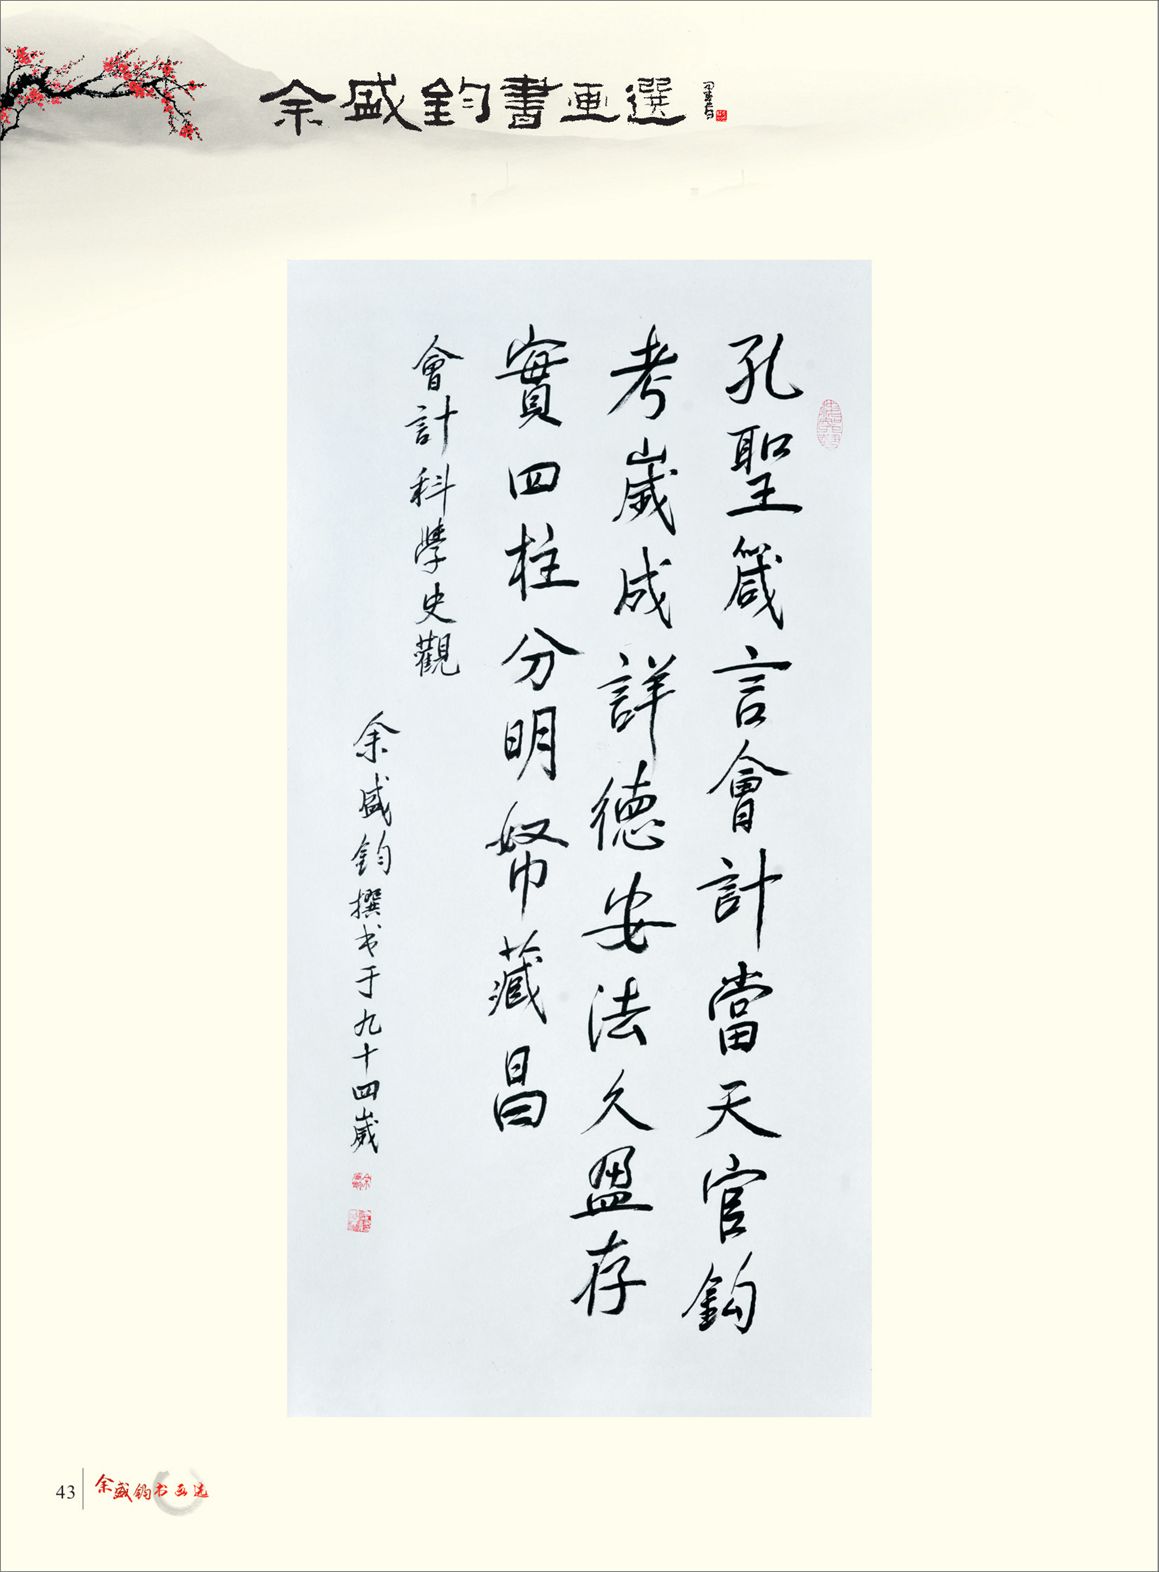 余盛鈞書画選
孔聖箴言會計當天官鈎
考歲成詳德安法久盈存
實四柱分明帑藏昌
會計科學史觀
余盛鈞撰书于九十四歲
43
余盛钧书画选